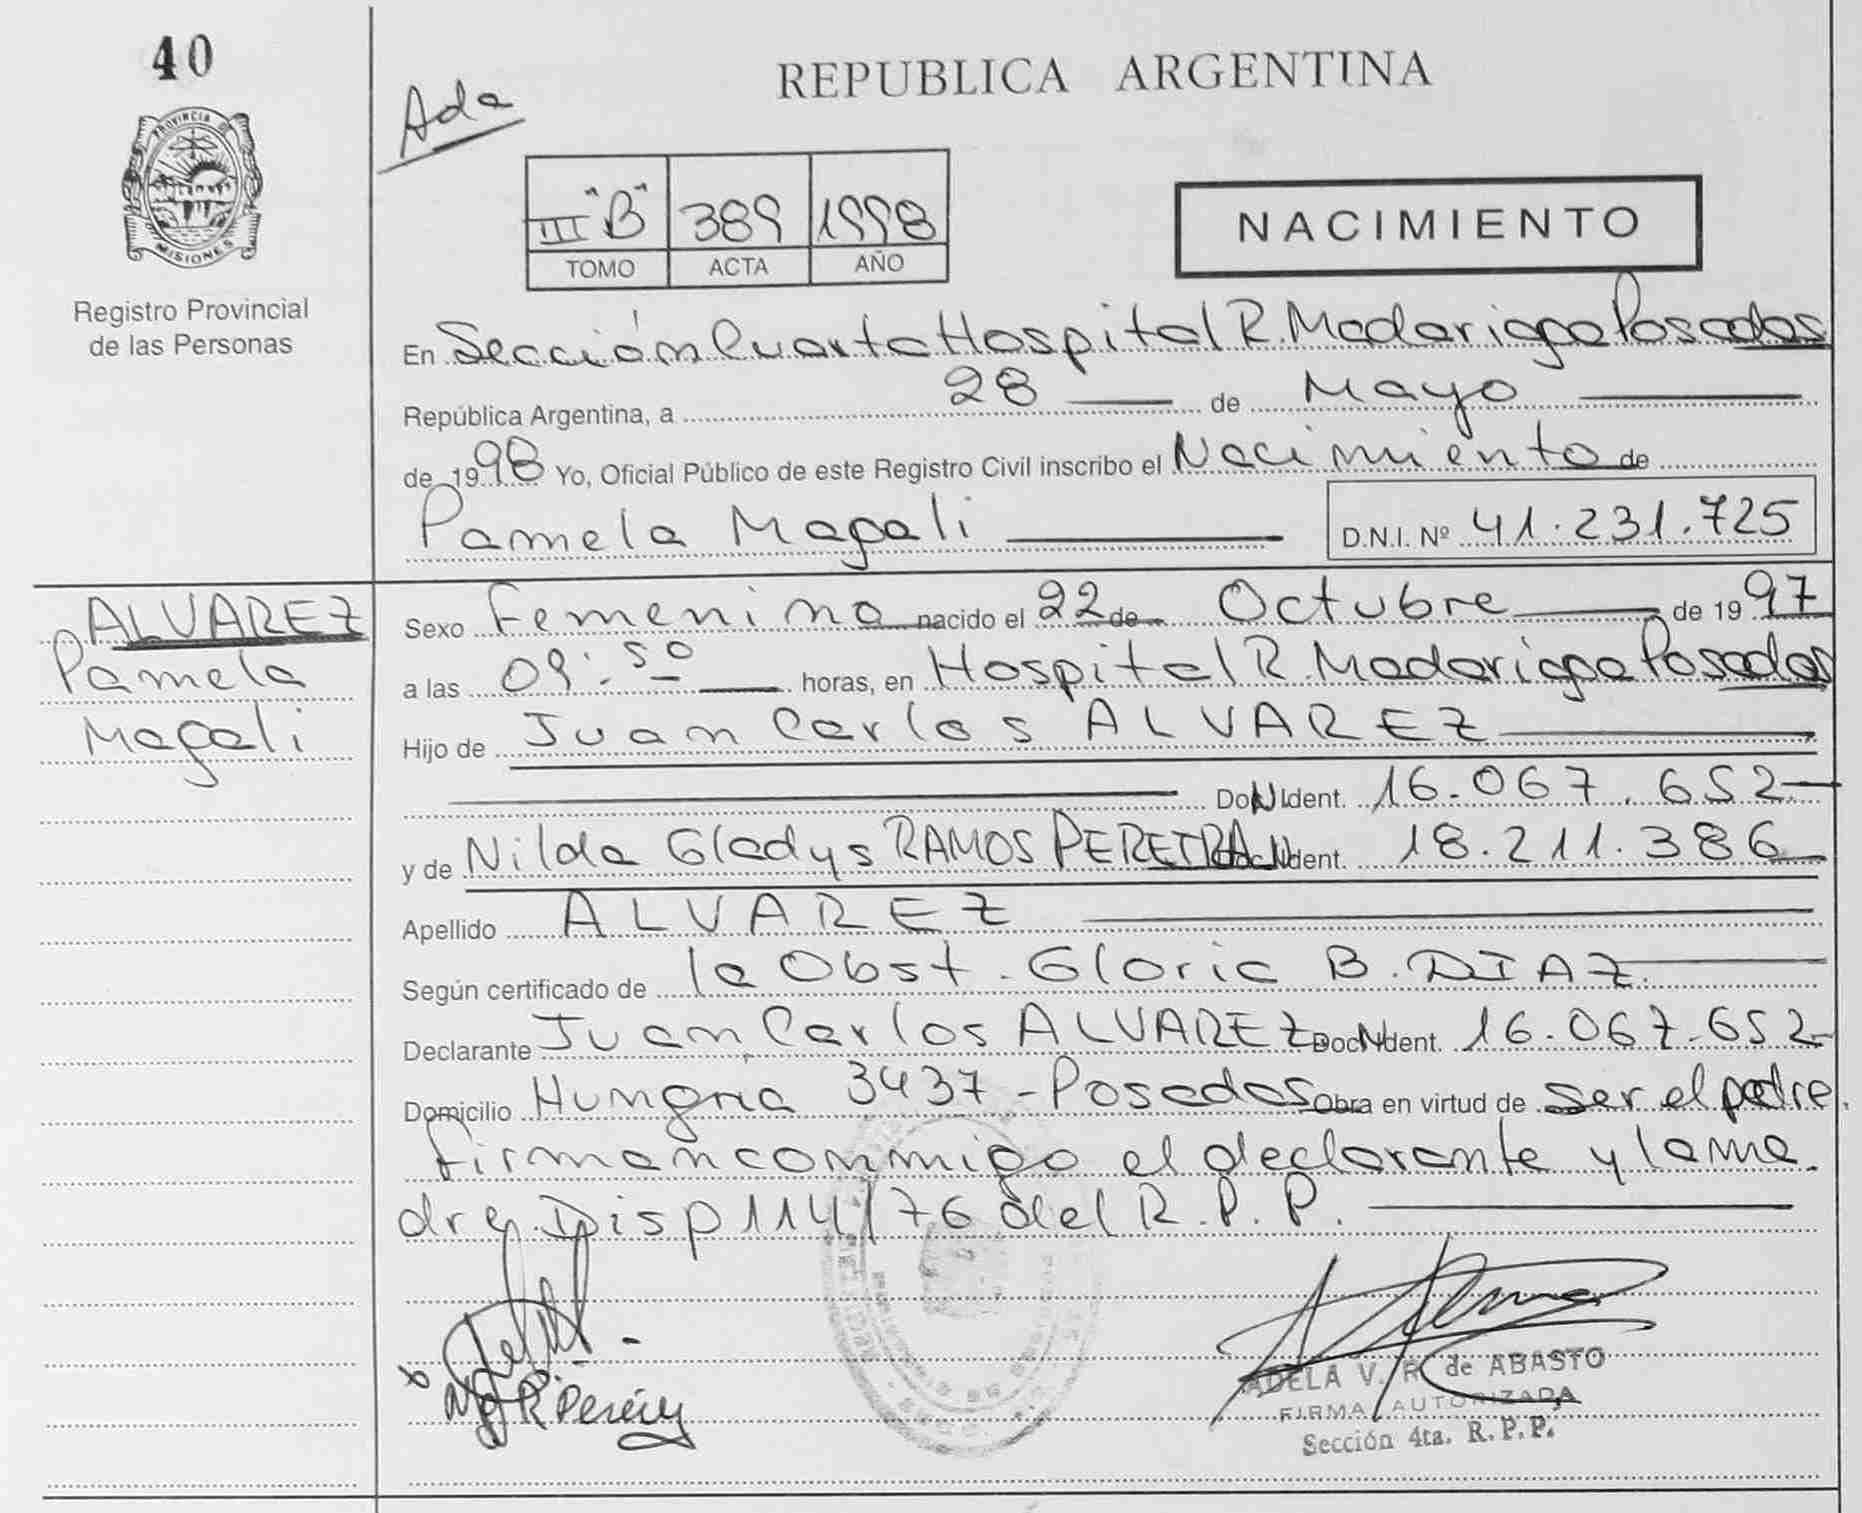 40
Ada
REPUBLICA ARGENTINA
PROVINCIA DE
MISIONES
Registro Provincial
de las Personas
III "B" 389 1998
TOMO ACTA AÑO
NACIMIENTO
En Sección Cuarta Hospital R. Madariaga Posadas
República Argentina, a 28 de Mayo
de 1998 Yo, Oficial Público de este Registro Civil inscribo el Nacimiento de
Pamela Magali D.N.I. Nº 41.231.725
ALVAREZ
Pamela
Magali
Sexo Femenino nacido el 22 de Octubre de 1997
a las 09:50 horas, en Hospital R. Madariaga Posadas
Hijo de Juan Carlos ALVAREZ
Ident. 16.067.652
y de Nilda Gladys RAMOS PEREIRA Ident. 18.211.386
Apellido ALVAREZ
Según certificado de la Obst. Gloria B. DIAZ.
Declarante Juan Carlos ALVAREZ Doc Ident. 16.067.652
Domicilio Hungria 3437 - Posadas Obra en virtud de ser el padre.
firman conmigo el declarante y la ma
dre. Disp 114/76 del R.P.P.
ADELA V. R. de ABASTO
FIRMA AUTORIZADA
Sección 4ta. R.P.P.